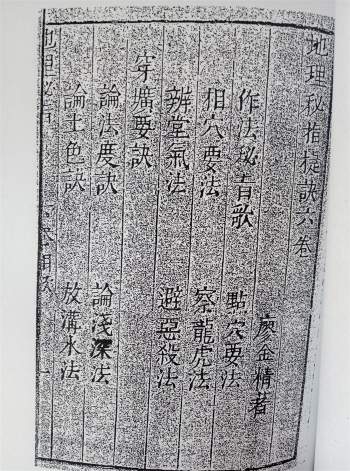 地理秘指捷訣六卷
廖金精著
作法秘旨歌 點穴要法
相穴要法 察龍虎法
辨堂氣法 避惡殺法
穿壙要訣
論法度訣 論淺深法
論土色訣 放溝水法
地理秘旨